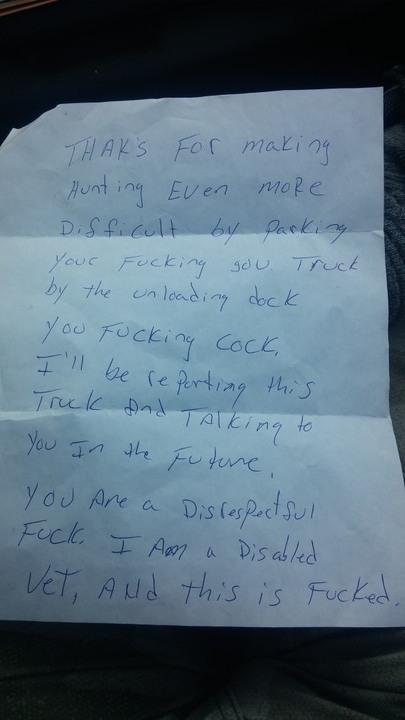 THAK'S For making
Hunting Even more
Difficult by Parking
your Fucking gov. Truck
by the unloading dock
you Fucking Cock.
I'll be reporting this
Truck And TAlking to
You In the Future.
You Are a Disrespectful
Fuck. I Am a Disabled
Vet, ANd this is Fucked.